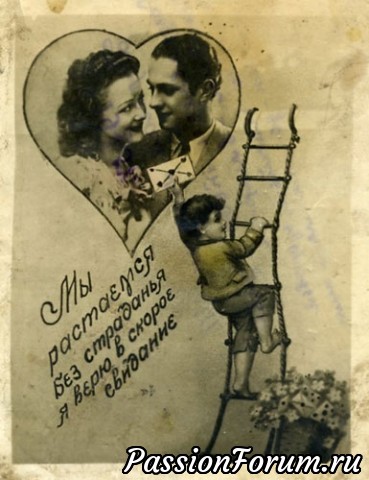 Мы
растаемся
Без страданья
Я верю в скорое
свидание
PassionForum.ru